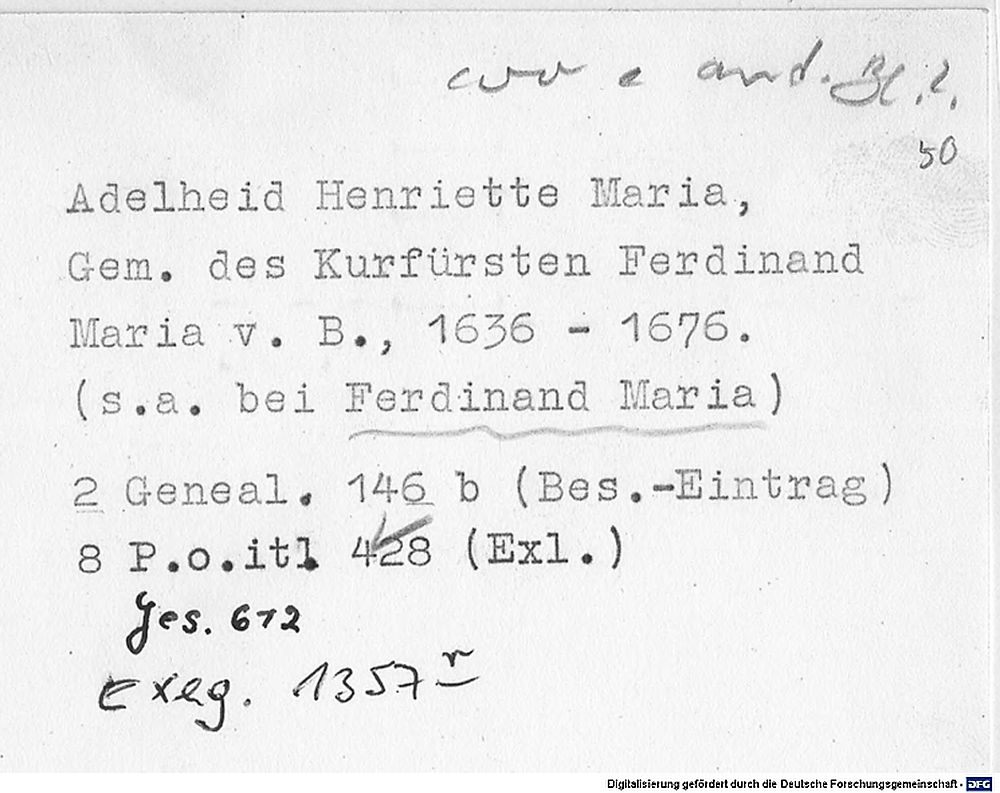 and. Bl. 2.
50
Adelheid Henriette Maria,
Gem. des Kurfürsten Ferdinand
Maria v. B., 1636 - 1676.
(s.a. bei Ferdinand Maria)
2 Geneal. 146 b (Bes.-Eintrag)
8 P.o.itl 428 (Exl.)
Jes. 672
Exeg. 1357 r
Digitalisierung gefördert durch die Deutsche Forschungsgemeinschaft - DFG